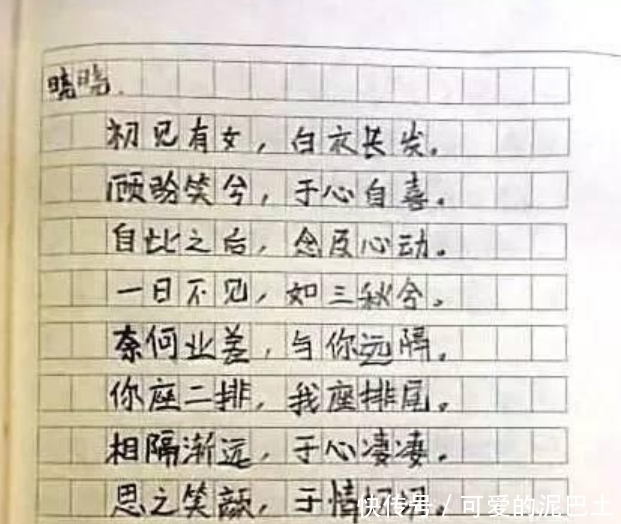 晓晓.
初见有女，白衣长发。
顾盼笑兮，于心自喜。
自此之后，念及心动。
一日不见，如三秋兮。
奈何业差，与你远隔。
你座二排，我座排尾。
相隔渐远，于心凄凄。
思之笑颜，于情
快传号/可爱的泥巴土